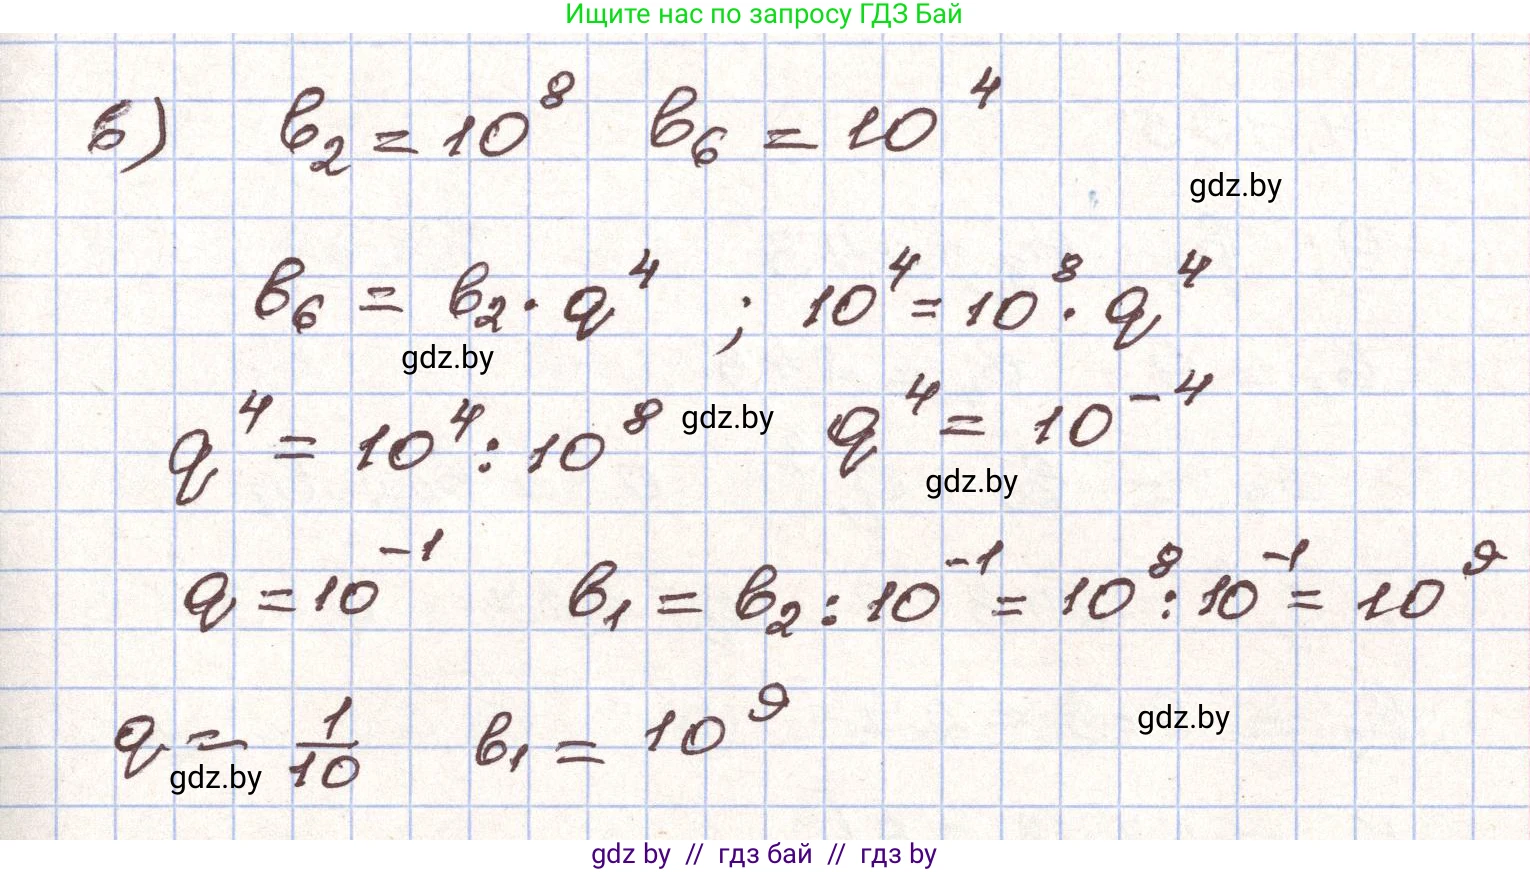 Ищите нас по запросу ГДЗ Бай
в) b₂ = 10⁸ b₆ = 10⁴
gdz.by
b₆ = b₂ · q⁴ ; 10⁴ = 10⁸ · q⁴
gdz.by
q⁴ = 10⁴ : 10⁸ gdz.by q⁴ = 10⁻⁴
gdz.by
q = 10⁻¹ b₁ = b₂ : 10⁻¹ = 10⁸ : 10⁻¹ = 10⁹
q = 1/10 b₁ = 10⁹ gdz.by
gdz.by
gdz by // гдз бай // гдз by